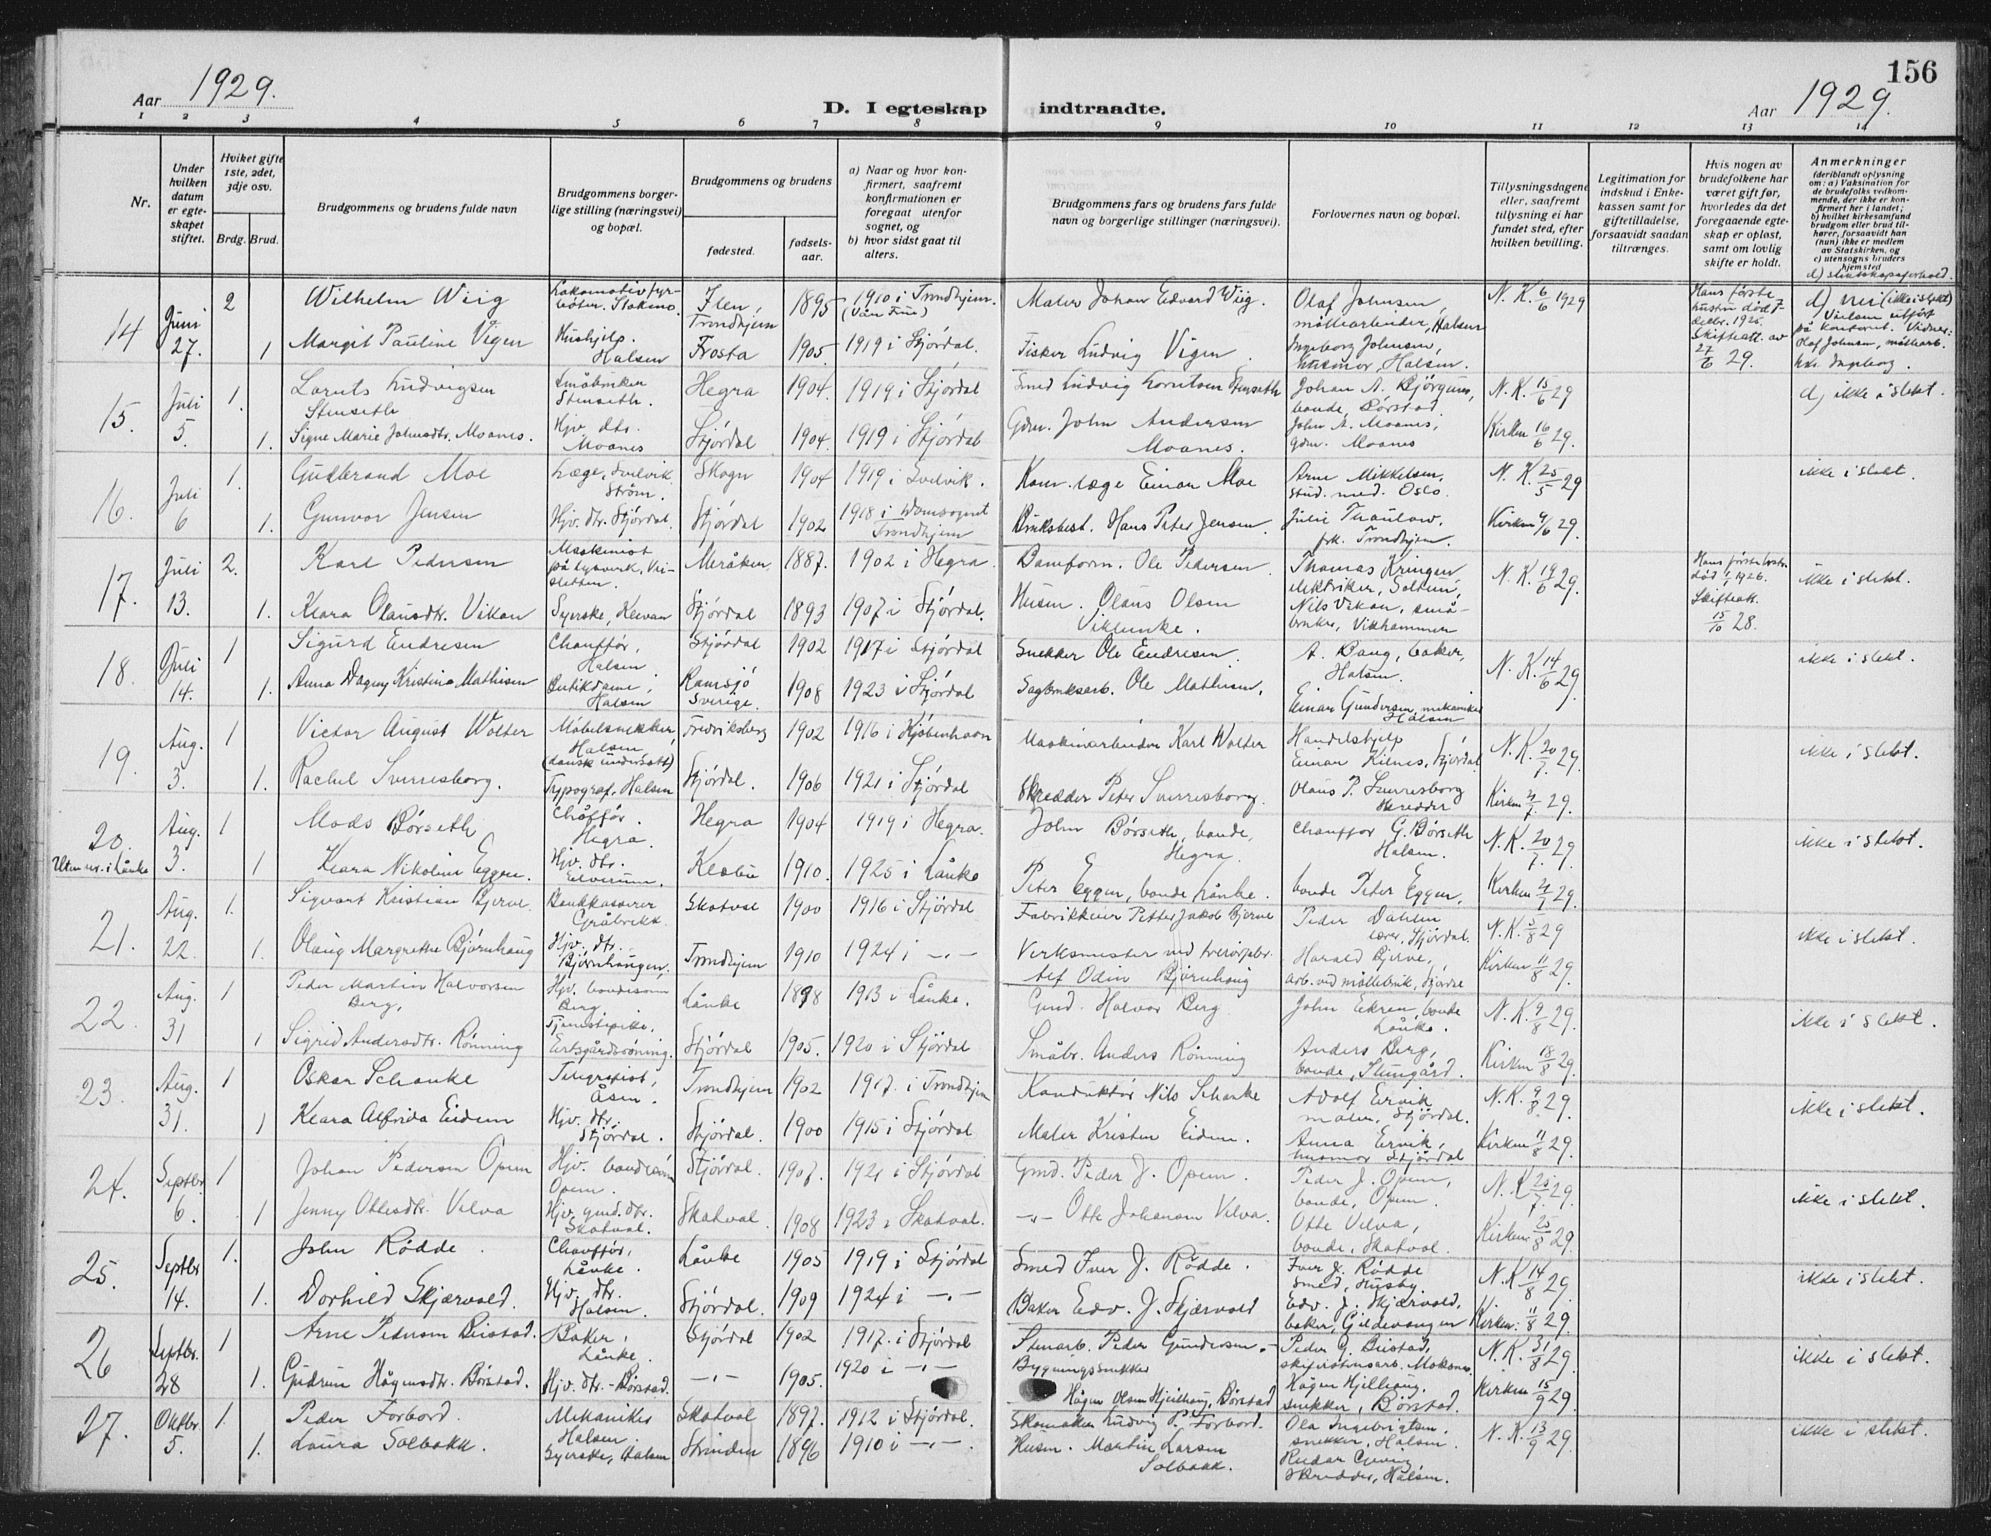 Aar 1929.
D. I egteskap indtraadte.
156
Aar 1929.
1 2 3 4 5 6 7 8 9 10 11 12 13 14
Nr.
Under hvilken datum er egteskapet stiftet.
Hvilket gifte 1ste, 2det, 3dje osv.
Brdg. Brud.
Brudgommens og brudens fulde navn
Brudgommens borgerlige stilling (næringsvei) og bopæl.
Brudgommens og brudens
fødested.
fødselsaar.
a) Naar og hvor konfirmert, saafremt konfirmationen er foregaat utenfor sognet, og
b) hvor sidst gaat til alters.
Brudgommens fars og brudens fars fulde navn og borgerlige stillinger (næringsvei).
Forlovernes navn og bopæl.
Tillysningsdagene eller, saafremt tillysning ei har fundet sted, efter hvilken bevilling.
Legitimation for indskud i Enkekassen samt for giftetilladelse, forsaavidt saadan tiltrænges.
Hvis nogen av brudefolkene har været gift før, hvorledes da det foregaaende egteskap er opløst, samt om lovlig skifte er holdt.
Anmerkninger (deriblandt oplysning om: a) Vaksination for de brudefolks vedkommende, der ikke er konfirmert her i landet; b) hvilket kirkesamfund brudgom eller brud tilhører, forsaavidt han (hun) ikke er medlem av Statskirken, og c) utensogns bruders hjemsted
d) slektskapsforhold.
14 Juni 27. 2 Wilhelm Wiig Lokomotivfyrbøter. Stokmo. Ilen, Trondhjem 1895 1910 i Trondhjem. Maler Johan Edvard Wiig. Olaf Johnsen, møllearbeider, Halsen N. K. 6/6 1929 Hans første hustru død 7 1925 Skifteatt. av 27/6 29. d) nei (ikke i slekt)
1 Margit Pauline Vigen Hushjelp. Halsen Frosta 1905. 1919 i Stjørdal. Fisker Ludvig Vigen. Ingeborg Johnsen, husmor, Halsen. Olaf Johnsen, møllearb. Ingeborg.
15. Juli 5. 1. Lornts Ludvigsen Stenseth Småbruker Stenseth. Hegra 1904. 1919 i Stjørdal Smed Ludvig Lorntsen Stenseth Johan A. Bjørgum, bonde, Børstad. N. K. 15/6 29 d) ikke i slekt.
1. Signe Marie Johnsdtr. Moanes. Hjv. dtr. Moanes Stjørdal 1904. 1919 i Stjørdal Gdm. John Andersen Moanes. John A. Moanes, gdm. Moanes Kirken 16/6 29.
16. Juli 6 1. Gudbrand Moe Læge, Svelvik Strøm. Skogn 1904 1919 i Svelvik. Kom. læge Einar Moe Arne Mikkelsen, stud. med. Oslo. N. K. 25/5 29 ikke i slekt.
1. Gunvor Jensen Hjv. dtr. Stjørdal. Stjørdal 1902 1918 i Domsognet Trondhjem Bruksbest. Hans Peter Jensen. Julie Thaulow, frk. Trondhjem. Kirken 9/6 29.
17. Juli 13. 2. Karl Pedersen Maskinist på lysverk, Meråker. 1887. 1902 i Hegra. Baneform. Ole Pedersen Thomas Kringen elektriker, N. K. 19/6 29. Hans første hustru død 1926. Skifteatt. 15/10 28. ikke i slekt.
1. Klara Olausdtr. Vikan Syerske, Stjørdal 1893 1907 i Stjørdal. Husm. Olaus Olsen Viklunke. Nils Vikan, småbruker, Vikhammer
18. Juli 14. 1 Sigurd Endresen Chauffør, Halsen Stjørdal 1902 1917 i Stjørdal Snekker Ole Endresen. A. Bang, baker, Halsen. N. K. 14/6 29. ikke i slekt.
1. Anna Dagny Kristine Mathisen Butikdame, Halsen Ramsjö Sverige. 1908 1923 i Stjørdal Sagbruksarb. Ole Mathisen. Einar Gundersen, mekaniker Halsen
19. Aug. 3. 1 Victor August Wolter Møbelsnekker, Halsen (dansk undersått) Fredriksberg 1902 1916 i Kjøbenhavn Maskinarbeider Karl Wolter Handelshjelp Einar Kilnes, Stjørdal N. K. 20/7 29. ikke i slekt.
1. Rachel Sverresborg. Typograf, Halsen Stjørdal. 1906 1921 i Stjørdal Skredder Peter Sverresborg. Olaus P. Sverresborg skredder Kirken 21/7 29.
20. Aug. 3. 1 Mads Børseth Chåffør. Hegra. Hegra 1904 1919 i Hegra. John Børseth, bonde, Hegra. Chauffør G. Børseth Halsen. N. K. 20/7 29. ikke i slekt.
1 Klara Nikoline Eggen. Hjv. dtr. Elverum. Klæbu 1910. 1925 i Lånke Peter Eggen, bonde Lånke. bonde Peter Eggen, Kirken 21/7 29.
21. Aug. 22. 1. Sigvart Kristian Bjerve. Bankkasserer Gråbrekk. Skatval 1900 1916 i Stjørdal Fabrikkeier Petter Jakob Bjerve Peder Dahlen lærer, Stjørdal. N. K. 5/8 29 ikke i slekt.
1. Olaug Margrethe Bjørnhaug Hjv. dtr. Bjørnhaugen. Trondhjem 1910 1924 i -"- Verksmester ved Alf Odin Bjørnhaug Harald Bjerve, arb. ved møllebruk, Stjørdal Kirken 11/8 29.
22. Aug. 31 1 Peder Martin Halvorsen Berg, Hjv. bondesønn Berg, Lånke 1898 1913 i Lånke. Gmd. Halvor Berg. John Ekren, bonde Lånke. N. K. 9/8 29. ikke i slekt.
1 Sigrid Andersdtr. Rønning Tjenestepike, Stjørdal 1905. 1920 i Stjørdal Småbr. Anders Rønning Anders Berg, bonde, Kirken 18/8 29.
23. Aug. 31. 1 Oskar Schanke Telegrafist, Åsen. Trondhjem 1902 1917. i Trondhjem Konduktør Nils Schanke Adolf Ervik maler, Stjørdal. N. K. 9/8 29. ikke i slekt.
1 Klara Alfrida Eidem Hjv. dtr. Stjørdal. Stjørdal. 1900 1915 i Stjørdal Maler Kristen Eidem. Anna Ervik, husmor Stjørdal Kirken 11/8 29.
24. Septbr. 6. 1 Johan Pedersen Opem Hjv. bondesønn Opem. Stjørdal. 1907. 1921 i Stjørdal Gmd. Peder J. Opem. Peder J. Opem, bonde, Opem N. K. 25/7 29. ikke i slekt.
1 Jenny Ottesdtr. Velva Hjv. gmd. dtr. Skatval. Skatval. 1908 1923 i Skatval. -"- Otte Johansen Velva. Otte Velva, bonde, Skatval. Kirken 25/8 29.
25. Septbr 14. 1. John Rødde. Chauffør, Lånke. Lånke 1905 1919 i Stjørdal Smed Iver J. Rødde. Iver J. Rødde Smed, Husby. N. K. 14/8 29. ikke i slekt.
1. Dorhild Skjærvold. Hjv. dtr. Halsen. Stjørdal. 1909 1924 i -"- Baker Edv. J. Skjærvold Edv. J. Skjærvold, baker, Gildevangen Kirken: 11/8 29.
26 Septbr. 28 1 Arne Pedersen Beistad. Baker, Lånke. Stjørdal 1902 1917. i Stjørdal Stenarb. Peder Gundersen. Peder G. Beistad, N. K. 31/8 29. ikke i slekt.
1. Gudrun Hågensdtr. Børstad. Hjv. dtr. Børstad. -"- 1905. 1920 i -"- Bygningssnekker Hågen Olsen Hjellhaug, Børstad Hågen Hjellhaug, snekker, Børstad. Kirken 15/9 29.
27. Oktbr 5. 1. Peder Forbord. Mekaniker Halsen. Skatval 1897. 1912 i Stjørdal. Skomaker Ludvig P. Forbord. Ola Ingebrigtsen, snekker, Halsen. N. K. 13/9 29. ikke i slekt.
1. Laura Solbakk. Syerske, Halsen Strinden 1896 1910 i -"- Husm. Martin Larsen Solbakk. Reidar skredder, Halsen.